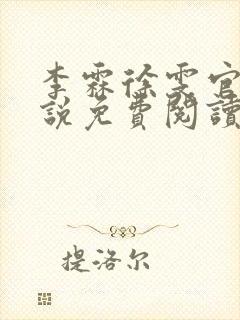 李霖徐雯官
說免費閱讀
提洛尔